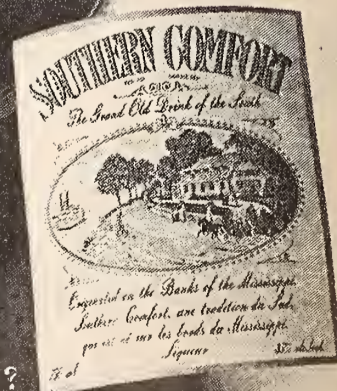 SOUTHERN COMFORT
The Grand Old Drink of the South
on the Banks of the Mississippi.
Southern Comfort, une tradition du Sud,
qui est né sur les bords du Mississippi.
Liqueur
?